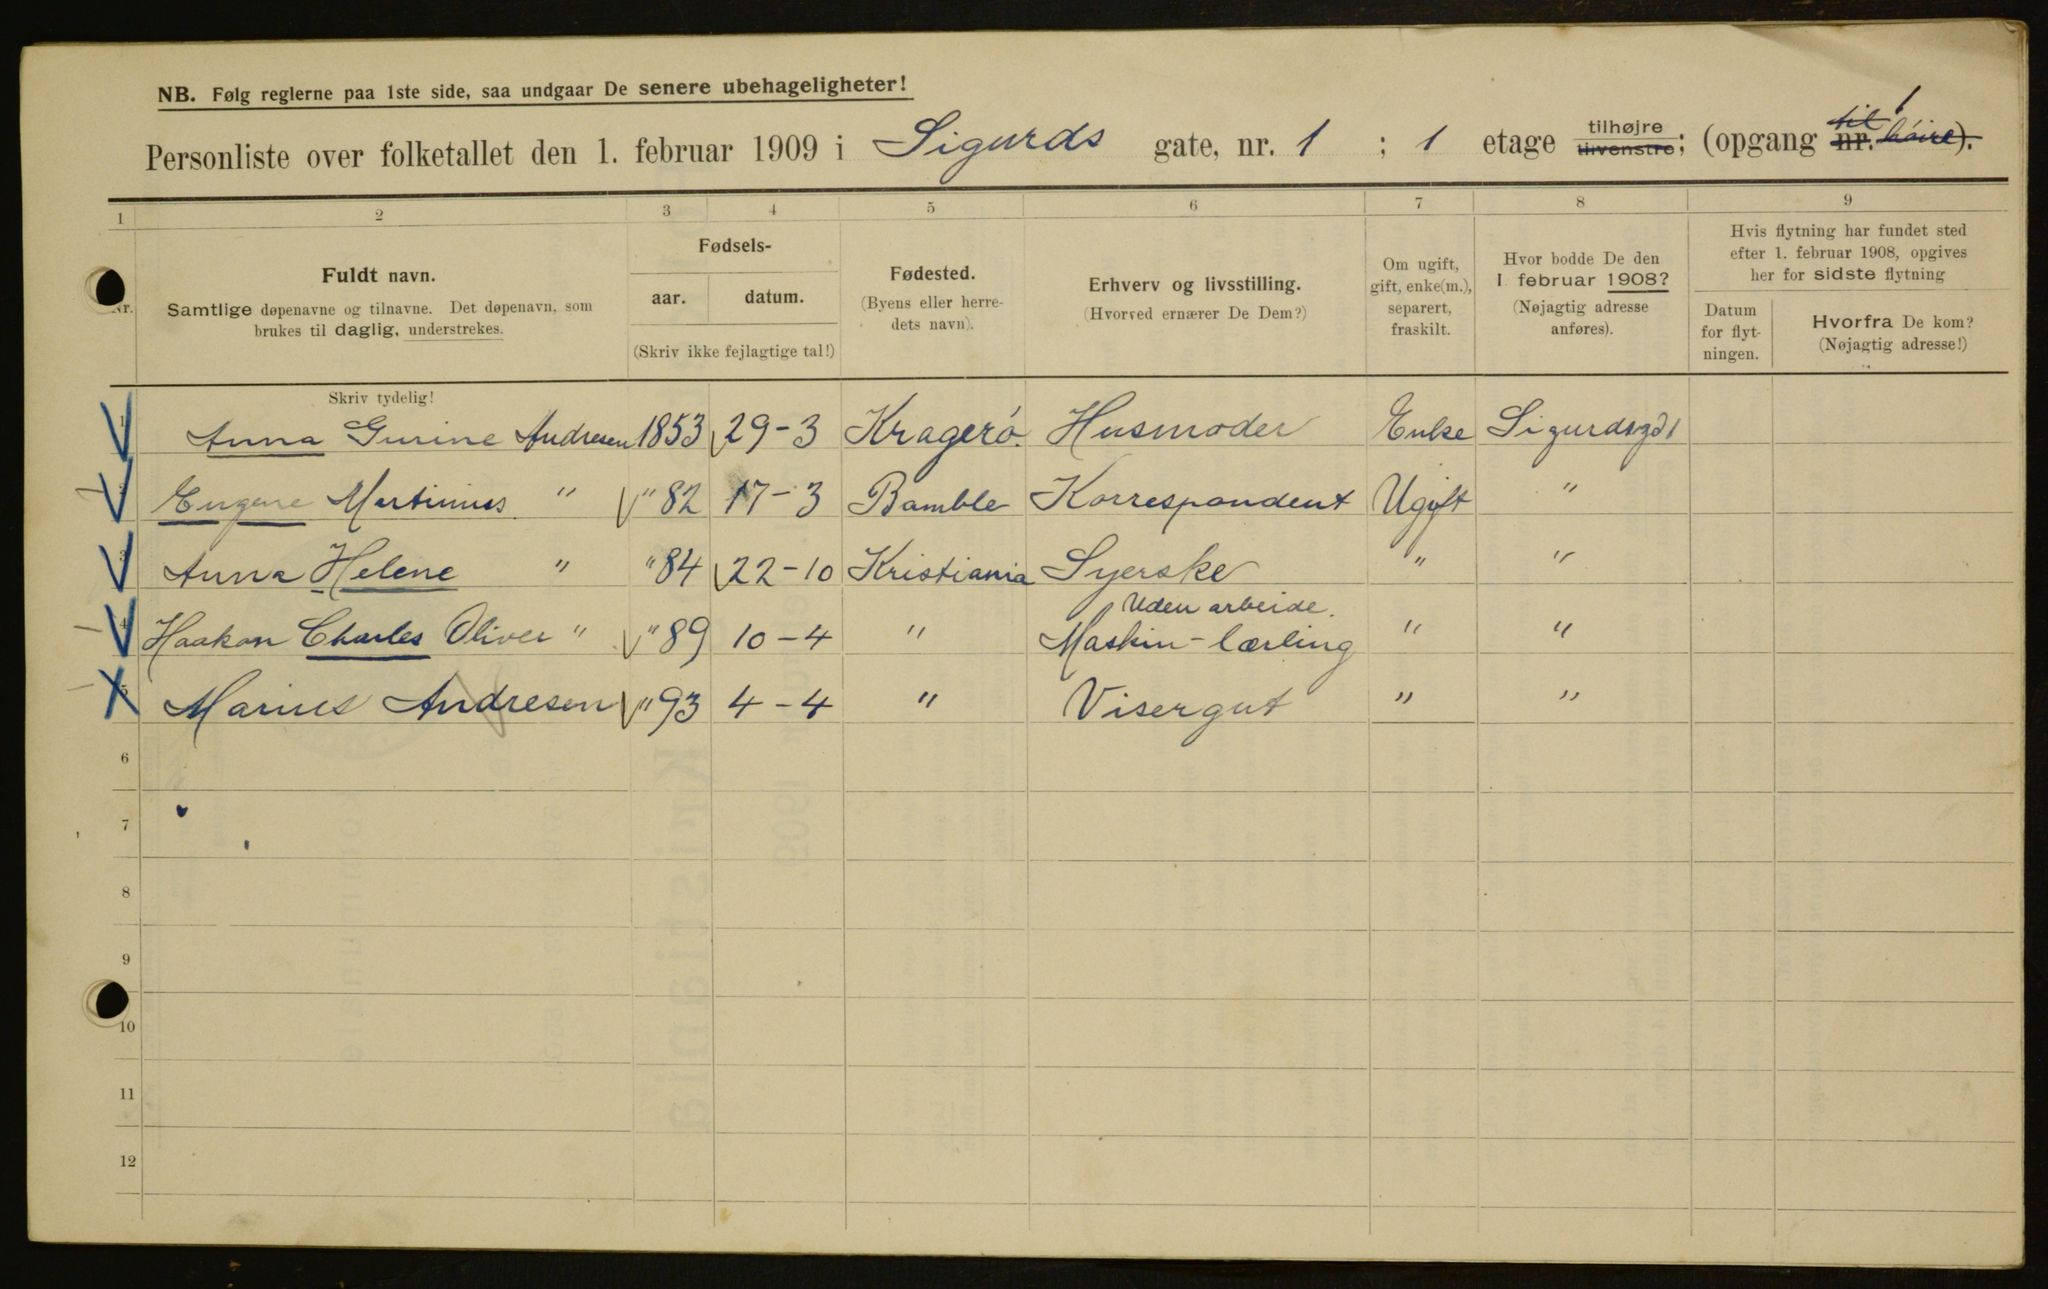 NB. Følg reglerne paa 1ste side, saa undgaar De senere ubehageligheter!
Personliste over folketallet den 1. februar 1909 i Sigurds gate, nr. 1 ; 1 etage tilhøjre tilvenstre; (opgang nr. til høire). 1
1 2 3 4 5 6 7 8 9
Nr.
Fuldt navn.
Samtlige døpenavne og tilnavne. Det døpenavn, som
brukes til daglig, understrekes.
Fødsels-
aar. datum.
(Skriv ikke fejlagtige tal!)
Fødested.
(Byens eller herre-
dets navn).
Erhverv og livsstilling.
(Hvorved ernærer De Dem?)
Om ugift,
gift, enke(m.),
separert,
fraskilt.
Hvor bodde De den
1. februar 1908?
(Nøjagtig adresse
anføres).
Hvis flytning har fundet sted
efter 1. februar 1908, opgives
her for sidste flytning
Datum
for flyt-
ningen.
Hvorfra De kom?
(Nøjagtig adresse!)
Skriv tydelig!
1 Anna Gurine Andresen 1853 29-3 Kragerø. Husmoder Enke Sigurdsgd 1
2 Eugene Martinius " " 82 17-3 Bamble Korrespondent Ugift "
3 Anna Helene " " 84 22-10 Kristiania Syerske " "
Uden arbeide.
4 Haakon Charles Oliver " " 89 10-4 " Maskin-lærling " "
5 Marius Andresen " 93 4-4 " Visergut " "
6
7
8
9
10
11
12